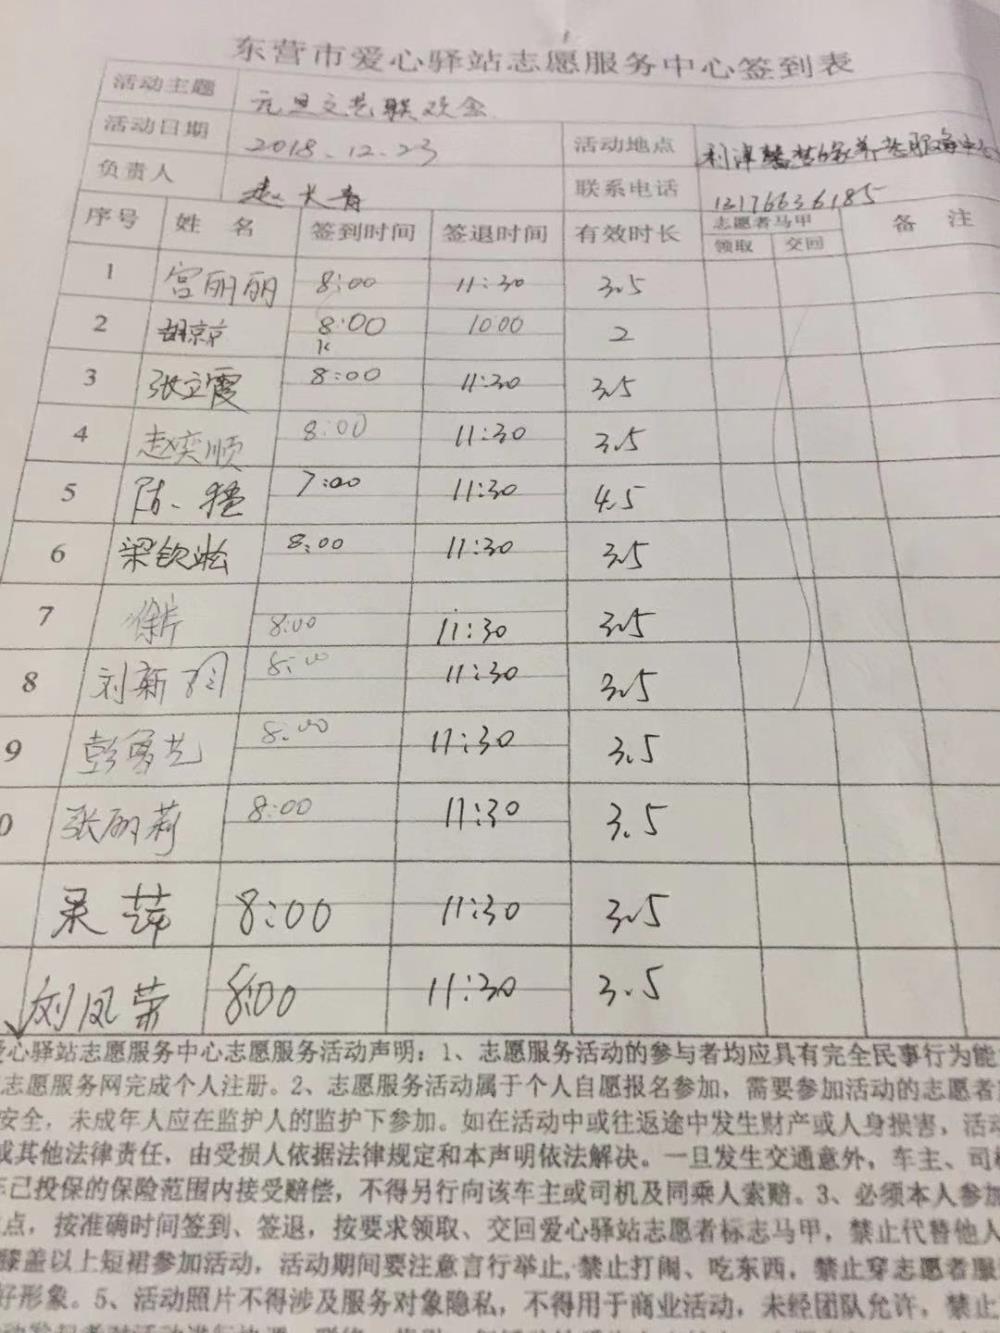 东营市爱心驿站志愿服务中心签到表
活动主题 元旦文艺联欢会
活动日期 2018.12.23 活动地点 利津 养老服务中心
负责人 赵长青 联系电话 13176636185
序号 姓名 签到时间 签退时间 有效时长 志愿者马甲 备注
领取 交回
1 宫丽丽 8:00 11:30 3.5
2 胡京京 8:00 10:00 2
3 张立霞 8:00 11:30 3.5
4 赵奕顺 8:00 11:30 3.5
5 陈 7:00 11:30 4.5
6 梁钦 8:00 11:30 3.5
7 8:00 11:30 3.5
8 刘新 8:00 11:30 3.5
9 彭 艺 8:00 11:30 3.5
0 张丽莉 8:00 11:30 3.5
萍 8:00 11:30 3.5
刘凤荣 8:00 11:30 3.5
爱心驿站志愿服务中心志愿服务活动声明：1、志愿服务活动的参与者均应具有完全民事行为能
志愿服务网完成个人注册。2、志愿服务活动属于个人自愿报名参加，需要参加活动的志愿者
安全，未成年人应在监护人的监护下参加。如在活动中或往返途中发生财产或人身损害，活动
或其他法律责任，由受损人依据法律规定和本声明依法解决。一旦发生交通意外，车主、司机
车已投保的保险范围内接受赔偿，不得另行向该车主或司机及同乘人索赔。3、必须本人参加
点，按准确时间签到、签退，按要求领取、交回爱心驿站志愿者标志马甲，禁止代替他人
膝盖以上短裙参加活动，活动期间要注意言行举止，禁止打闹、吃东西，禁止穿志愿者服
好形象。5、活动照片不得涉及服务对象隐私，不得用于商业活动，未经团队允许，禁止